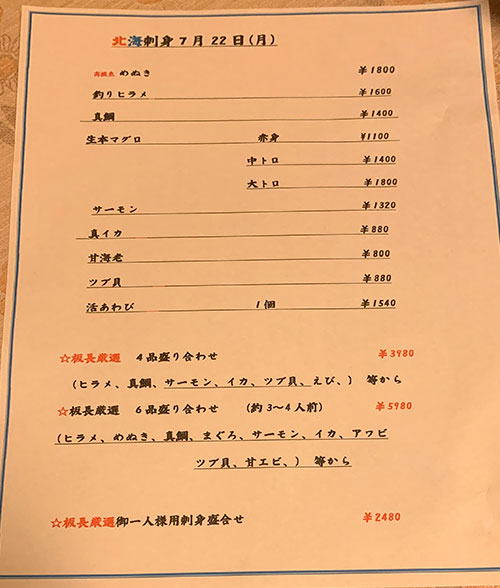 北海刺身7月22日(月)
高級魚 めぬき ¥1800
釣りヒラメ ¥1600
真鯛 ¥1400
生本マグロ 赤身 ¥1100
中トロ ¥1400
大トロ ¥1800
サーモン ¥1320
真イカ ¥880
甘海老 ¥800
ツブ貝 ¥880
活あわび 1個 ¥1540
☆板長厳選 4品盛り合わせ ¥3980
(ヒラメ、真鯛、サーモン、イカ、ツブ貝、えび、) 等から
☆板長厳選 6品盛り合わせ (約3~4人前) ¥5980
(ヒラメ、めぬき、真鯛、まぐろ、サーモン、イカ、アワビ
ツブ貝、甘エビ、) 等から
☆板長厳選御一人様用刺身盛合せ ¥2480